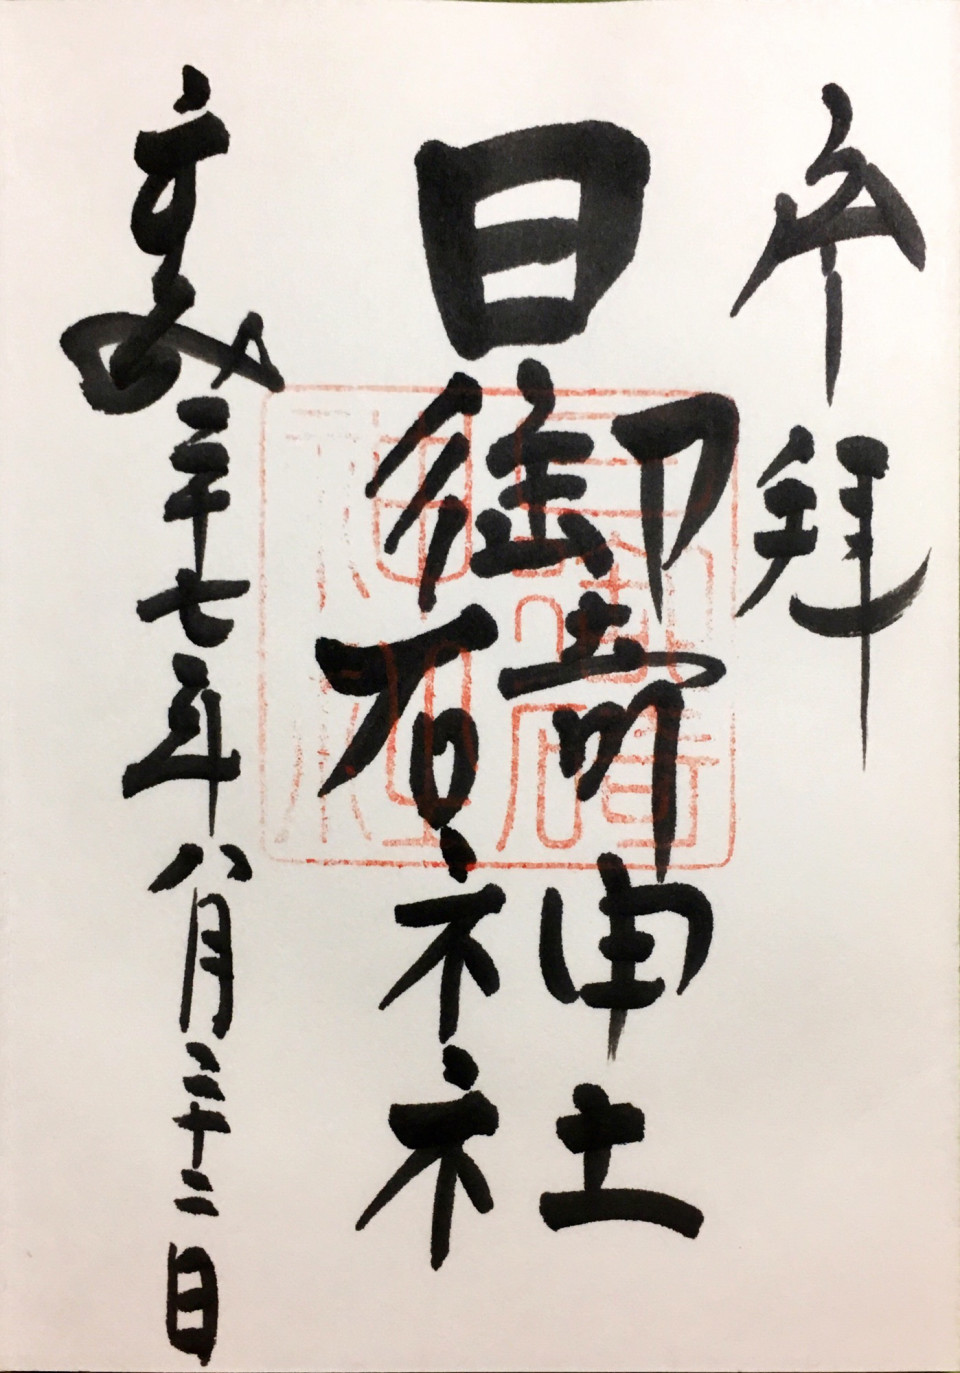 奉拝
日御碕神社
平成二十七年八月二十二日
日御碕
神社